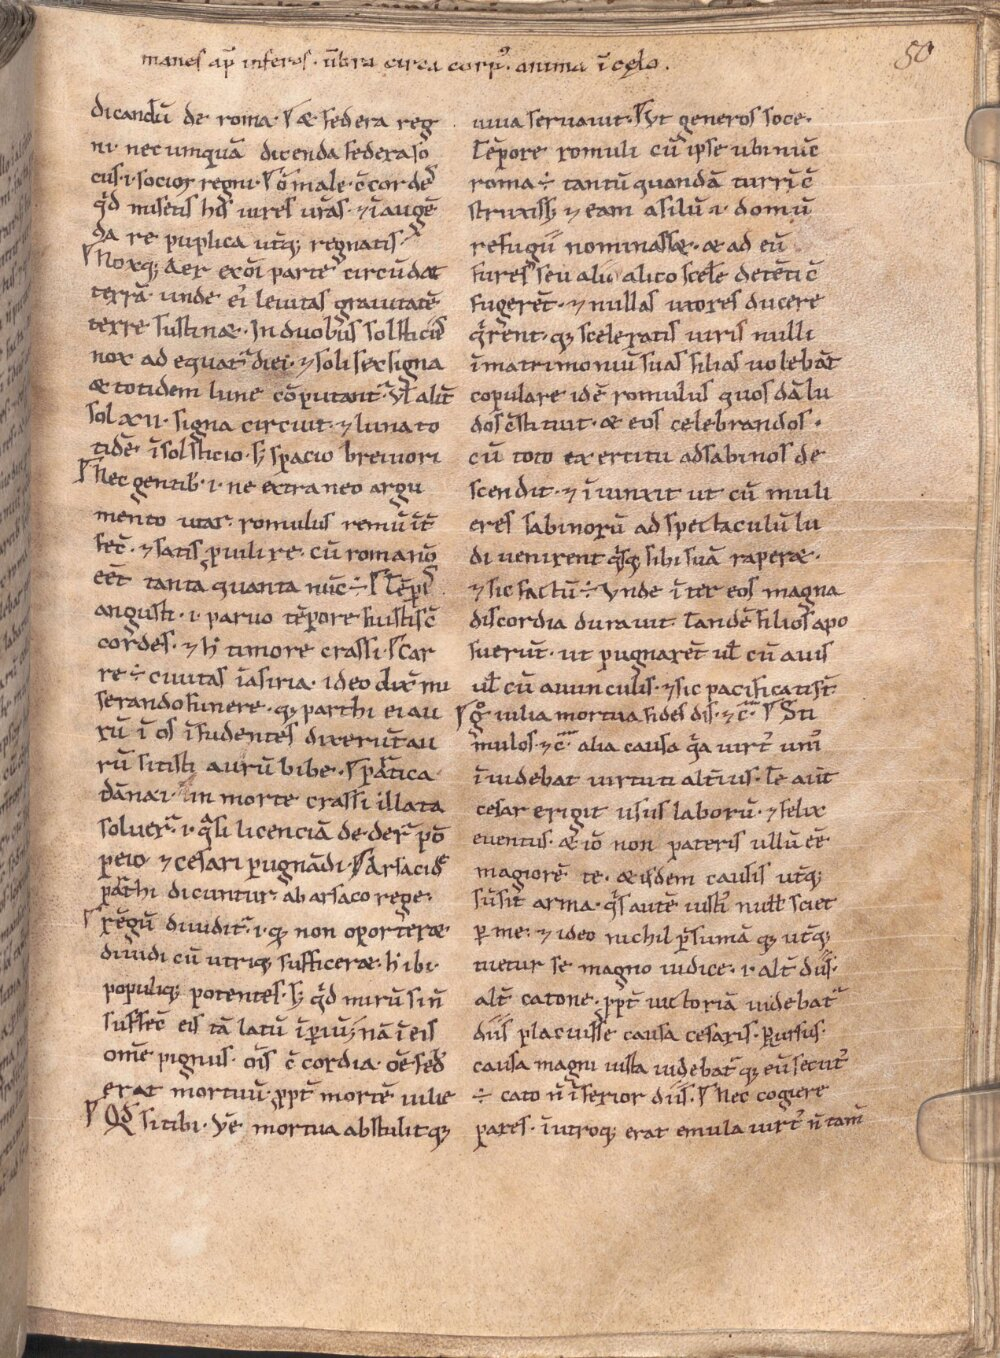 manes ap̄ inferos · ūbra circa corp⁹ · anima ī cęlo .
50
dicandū de roma · ⸿ & federa reg
ni · nec umquā dicenda federa so
cus · i · socior̄ regni · ⸿ ō male · c̄cordes
q̄d misetis his iures ur̄as · ⁊ ī augē
da re puplica utq; regnatis ·
⸿ Noxq; Aer ex oī parte circūdat
terrā · unde ei' leuitas grauitatē
terre sustin& · In duobus solsticiis
nox ad equat᷑ diei · ⁊ soli sex signa
& totidem lune cōputant᷑ · Vł alit᷑
sol xii · signa circuit · ⁊ luna to
tidē · ī solsticio · s; spacio breuiori
⸿ Nec gentib; · i · ne extraneo argu
mento utar · romulus remū īt̄
fec̄ · ⁊ satis puili re · cū roma n̄
eēt tanta quanta nūc ÷ ⸿ Tēp̄is
angusti · i · paruo tēpore fuistis c̄
cordes · ⁊ h̄ timore crassi · ⸿ Car
re ÷ ciuitas ī asiria · ideo dix̄ mi
serando funere · q; parthi ei au
rū ī os īfudentes dixerūt au
rū sitisti aurū bibe · ⸿ p̄atica
dāna · i · in morte crassi illata
soluer̄ · i · q̄si licenciā de der̄ pō
peio · ⁊ cesari pugnādi · ⸿ Arsacidę
par̄thi dicuntur ab arsaco rege ·
⸿ rēgū diuidit᷑ · i · q; non oporter&
diuidi cū utriq; sufficer& · h̄ ibi ·
populiq; potentes · s; q̄d mirū si n̄
suffec̄ eis tā latū īperiū; nā ī eis
om̄e pignus · om̄is c̄cordia · om̄e fed᷒
erat mortuū · p̄pt̄ mortē iulie
⸿ Qd̄ si tibi · Vē mortua abstulit q;
uiua seruauit · ⸿ Vt generos soce ·
Tēpore romuli cū ipse ubi nūc
roma ÷ tantū quandā turrī c̄
struxiss; ⁊ eam asilū · i · domū
refugii nominass& · & ad eū
fures seu alii alico scełe detēti c̄
fugerēt · ⁊ nullas uxores ducere
q̄rent · q; sceleratis uiris nulli
ī matrimoniū suas filias uolebāt
copulare idē romulus quosdā lu
dos c̄stituit · & eos celebrandos ·
cū toto exercitu ad sabinos de
scendit · ⁊ īuinxit ut cū muli
eres sabinorū ad spectaculū lu
di uenirent q̄sq; sibi suā raper& ·
⁊ sic factū ÷ Vnde īter eos magna
discordia durauit · Tandē filios apo
suerūt · ut pugnarēt uł cū auis
uł cū auunculis · ⁊ sic pacificati st̄
⸿ g° iulia mortua fides dis · ⁊ c̄ · ⸿ Sti
mulos · ⁊ c̄ · alia causa q̄a uirt᷒ uni᷒
īuidebat uirtuti alt̄ius · Te aut̄
cesar erigit usus laborū · ⁊ felix
euentus · & iō non pateris ullū eē
magiorē te · & iisdem causis utq;
sūsit᷑ arma · q̄s autē iusti᷒ nułł sciet
p̄ me · ⁊ ideo nichil p̄sumā q; ut̄q;
tuetur se magno iudice · i · alt̄ diis ·
alt̄ catone · p̄pt̄ uictoriā uidebat᷑
diis placuisse causa cesaris · Rursus
causa magni iusta uidebat᷑ q; eū secut᷒
÷ cato n̄ īferior diis · ⸿ Nec cogiere
pares · ī utroq; erat emula uirt᷒ n̄ tam̄